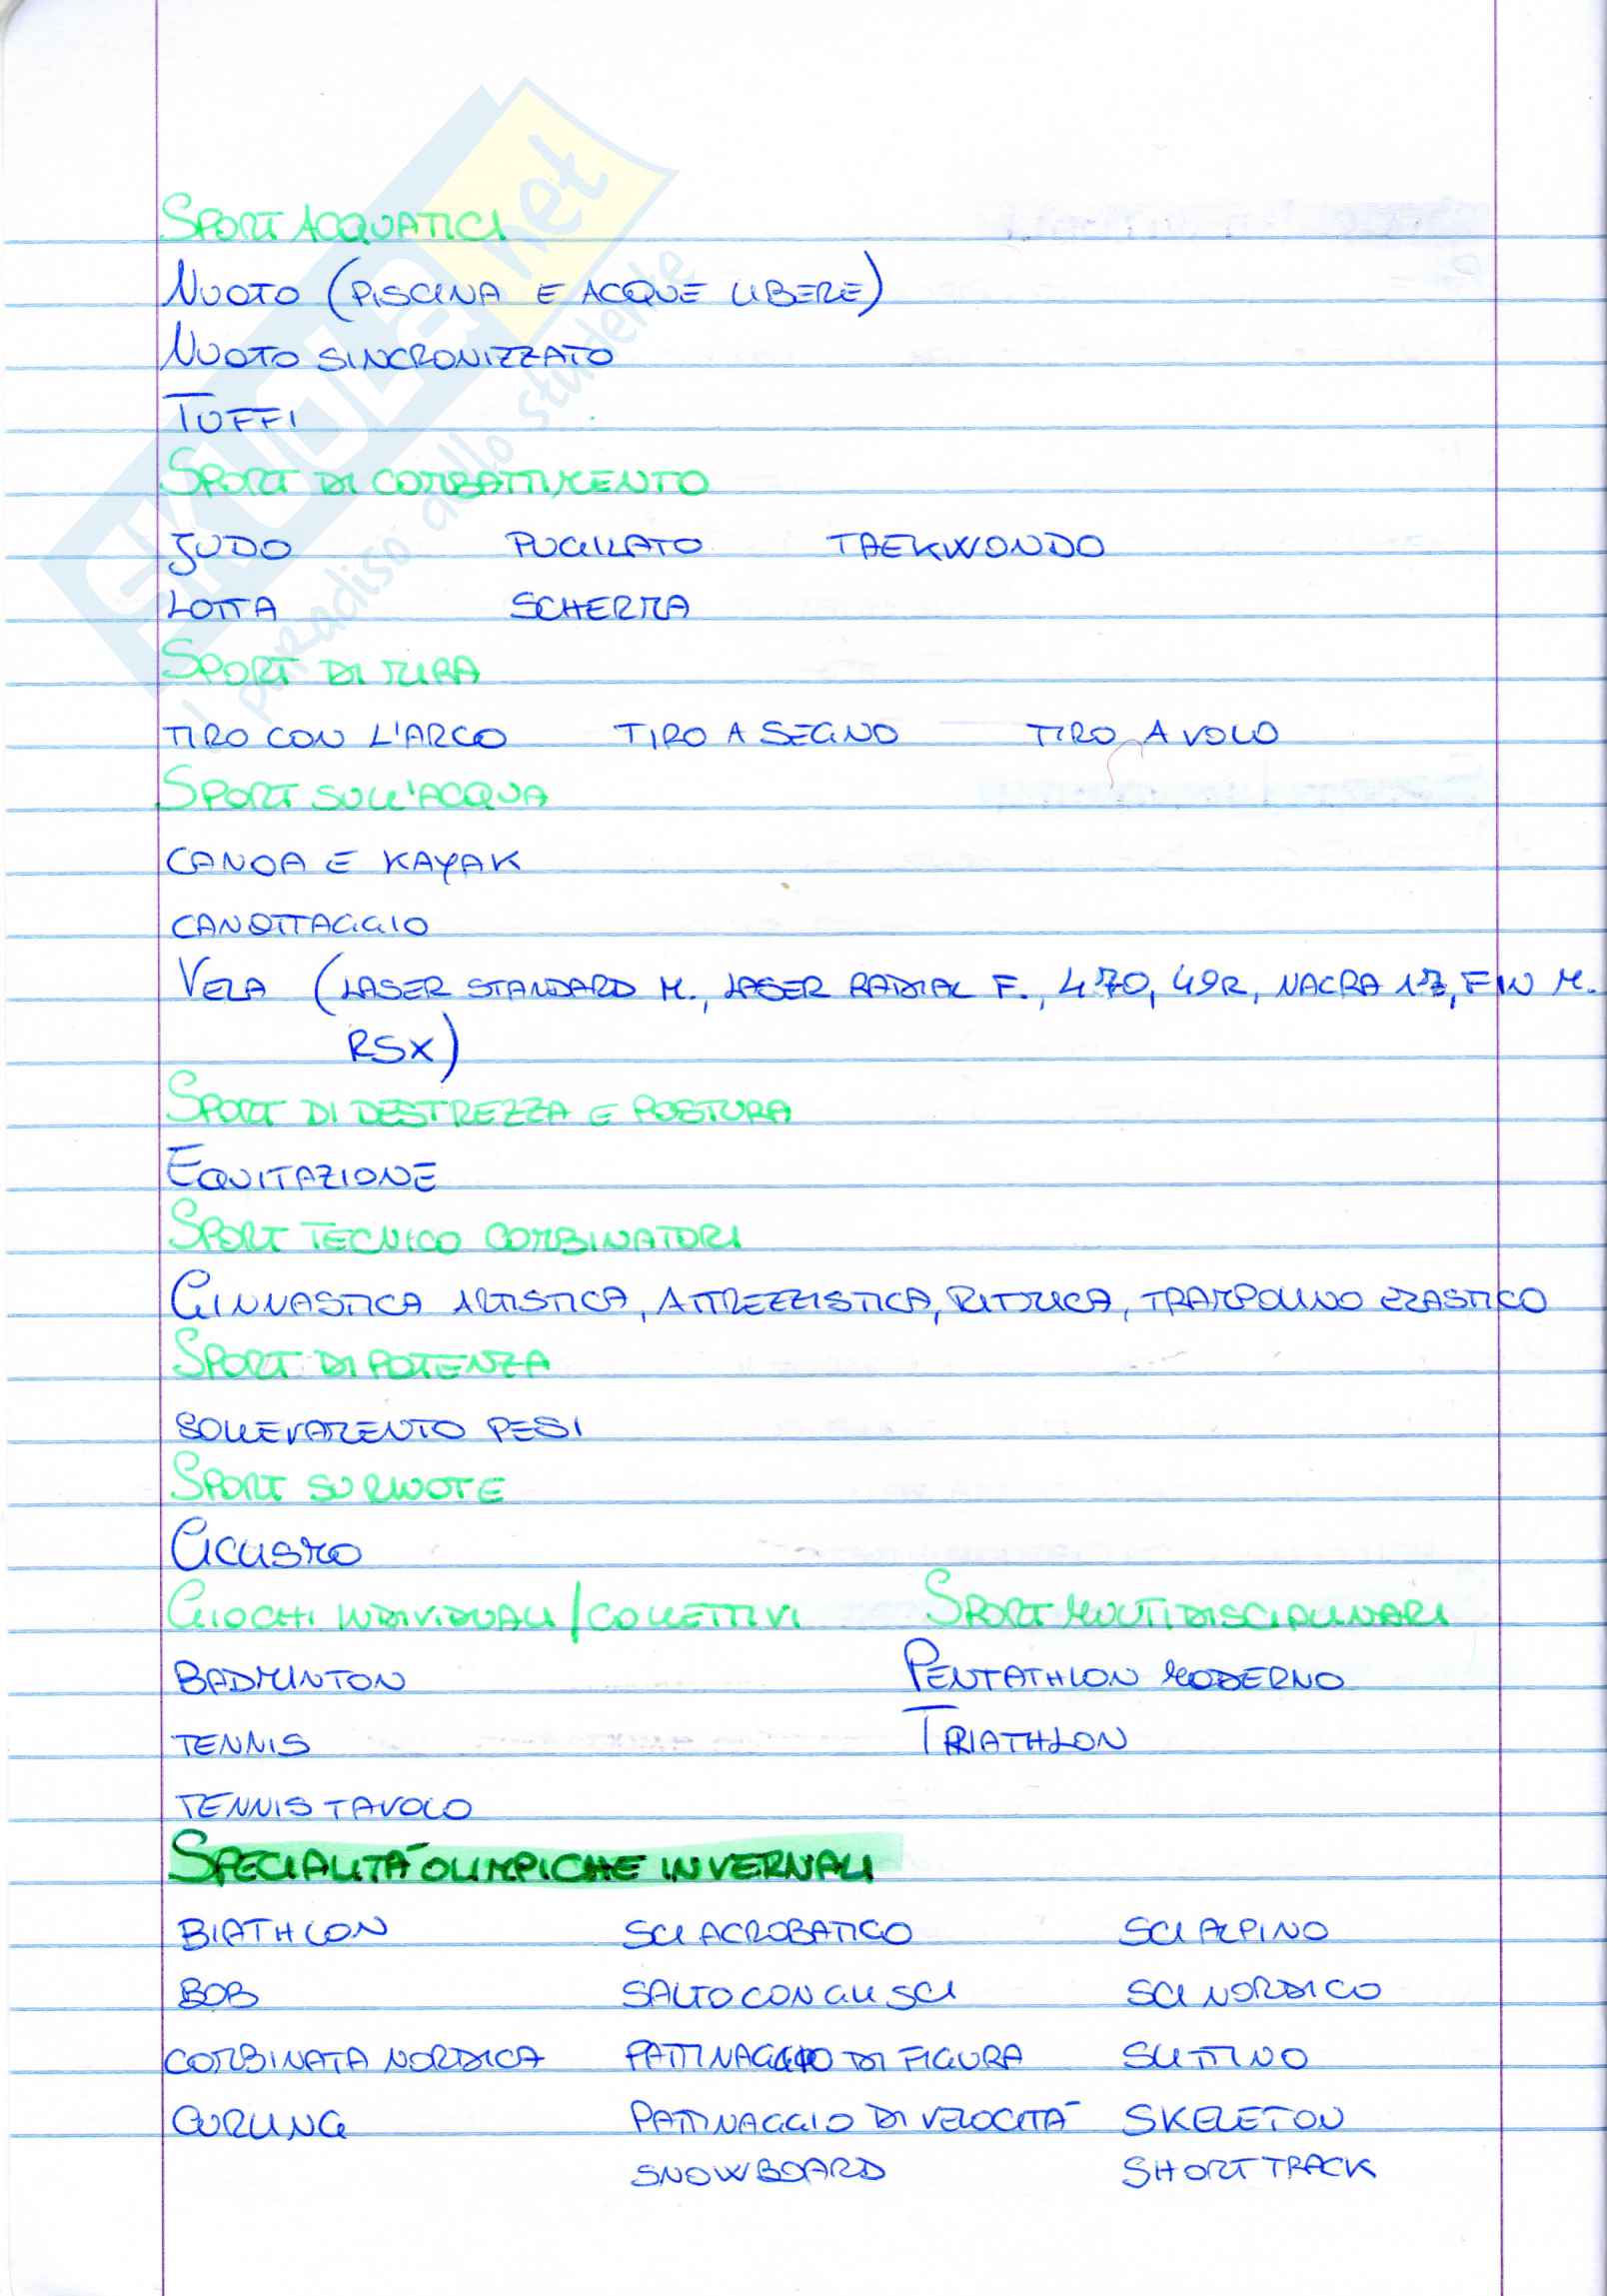 SKUOLA.net
il paradiso dello studente
SPORT ACQUATICI
NUOTO (PISCINA E ACQUE LIBERE)
NUOTO SINCRONIZZATO
TUFFI
SPORT DI COMBATTIMENTO
JUDO PUGILATO TAEKWONDO
LOTTA SCHERMA
SPORT DI MIRA
TIRO CON L'ARCO TIRO A SEGNO TIRO A VOLO
SPORT SULL'ACQUA
CANOA E KAYAK
CANOTTAGGIO
VELA (LASER STANDARD M., LASER RADIAL F., 470, 49R, NACRA 17, FIN M.
RSX)
SPORT DI DESTREZZA E POSTURA
EQUITAZIONE
SPORT TECNICO COMBINATORI
GINNASTICA ARTISTICA, ATTREZZISTICA, RITMICA, TRAMPOLINO ELASTICO
SPORT DI POTENZA
SOLLEVAMENTO PESI
SPORT SU RUOTE
CICLISMO
GIOCHI INDIVIDUALI/COLLETTIVI SPORT MULTIDISCIPLINARI
BADMINTON PENTATHLON MODERNO
TENNIS TRIATHLON
TENNIS TAVOLO
SPECIALITÀ OLIMPICHE INVERNALI
BIATHLON SCI ACROBATICO SCI ALPINO
BOB SALTO CON GLI SCI SCI NORDICO
COMBINATA NORDICA PATTINAGGIO DI FIGURA SLITTINO
CURLING PATTINAGGIO DI VELOCITÀ SKELETON
SNOWBOARD SHORT TRACK